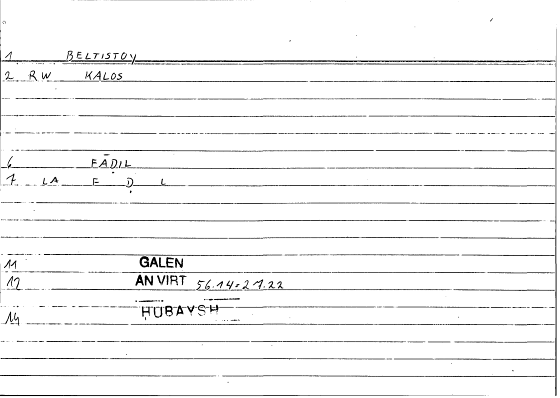 1 BELTISTOY
2 RW KALOS
6 FĀḌIL
7 LA F Ḍ L
11 GALEN
12 AN VIRT 56.14=21.22
14 ḤUBAYSH